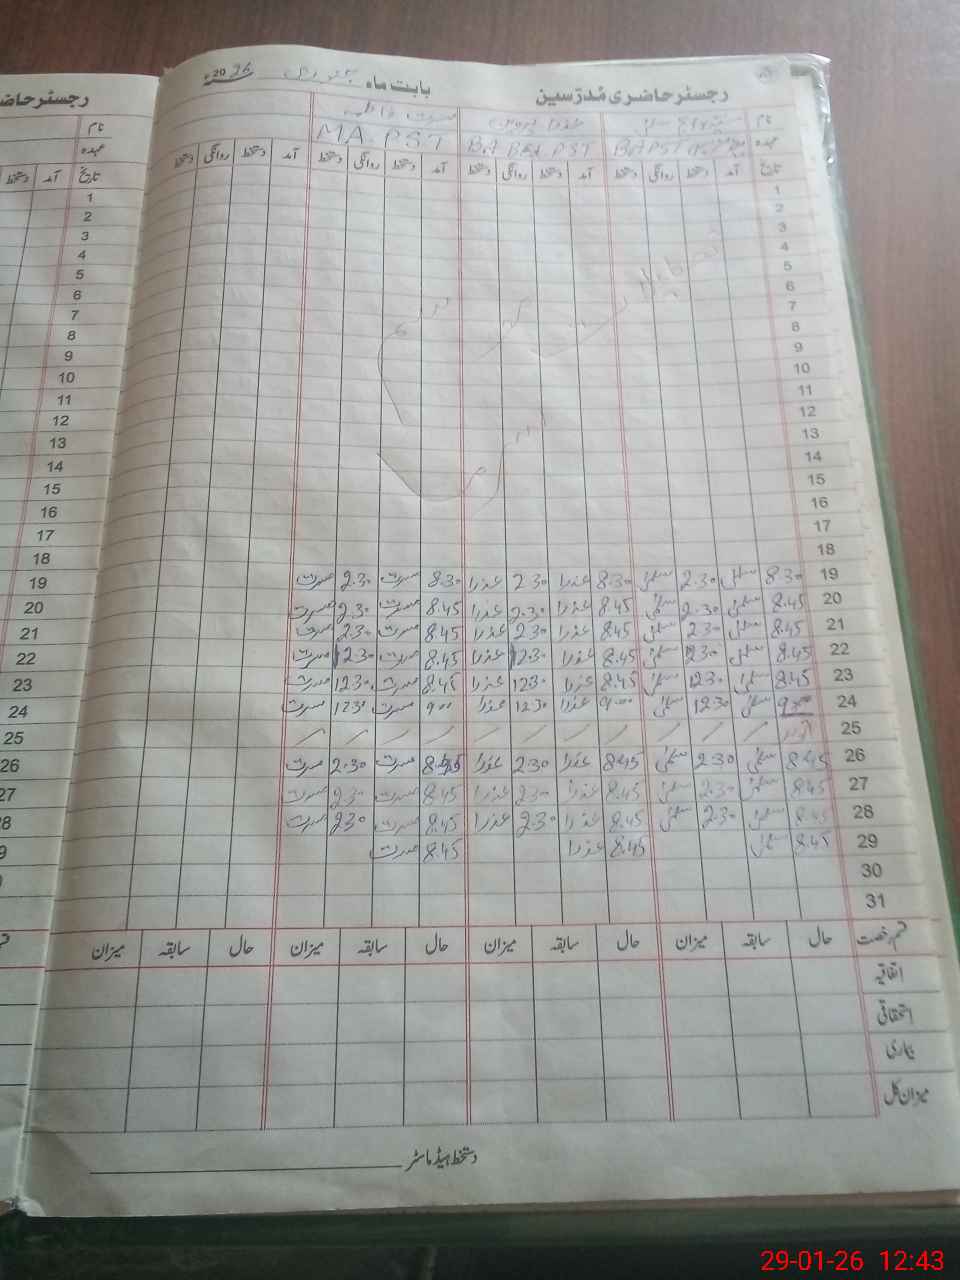 رجسٹر حاضری مُدرّسین بابت ماہ جنوری 2026ء
رجسٹر حاضری
نام عذرا پروین مسرت فاطمہ
عہدہ BA PST BA BEd PST MA. PST
تاریخ آمد دستخط روانگی دستخط آمد دستخط روانگی دستخط آمد دستخط روانگی دستخط آمد دستخط روانگی دستخط
نام
عہدہ
تاریخ آمد دستخط
1
2
3
4
5
6
7
8
9
10
11
12
13
14
15
16
17
18
19 8.30 سلمیٰ 2.30 سلمیٰ 8.30 عذرا 2.30 عذرا 8.30 مسرت 2.30 مسرت
20 8.45 سلمیٰ 2.30 سلمیٰ 8.45 عذرا 2.30 عذرا 8.45 مسرت 2.30 مسرت
21 8.45 سلمیٰ 2.30 سلمیٰ 8.45 عذرا 2.30 عذرا 8.45 مسرت 2.30 مسرت
22 8.45 سلمیٰ 12.30 سلمیٰ 8.45 عذرا 12.30 عذرا 8.45 مسرت 12.30 مسرت
23 8.45 سلمیٰ 12.30 سلمیٰ 8.45 عذرا 12.30 عذرا 8.45 مسرت 12.30 مسرت
24 9.00 سلمیٰ 12.30 سلمیٰ 9.00 عذرا 12.30 عذرا 9.00 مسرت 12.30 مسرت
25 اتوار / / / / / / / / / / /
26 8.45 سلمیٰ 2.30 سلمیٰ 8.45 عذرا 2.30 عذرا 8.45 مسرت 2.30 مسرت
27 8.45 سلمیٰ 2.30 سلمیٰ 8.45 عذرا 2.30 عذرا 8.45 مسرت 2.30 مسرت
28 8.45 سلمیٰ 2.30 سلمیٰ 8.45 عذرا 2.30 عذرا 8.45 مسرت 2.30 مسرت
29 8.45 سلمیٰ 8.45 عذرا 8.45 مسرت
30
31
قسم رخصت حال سابقہ میزان حال سابقہ میزان حال سابقہ میزان حال سابقہ میزان
اتفاقیہ
استحقاقی
بیماری
میزان کل
دستخط ہیڈ ماسٹر
1
2
3
4
5
6
7
8
9
10
11
12
13
14
15
16
17
18
19
20
21
22
23
24
25
26
27
28
29-01-26 12:43